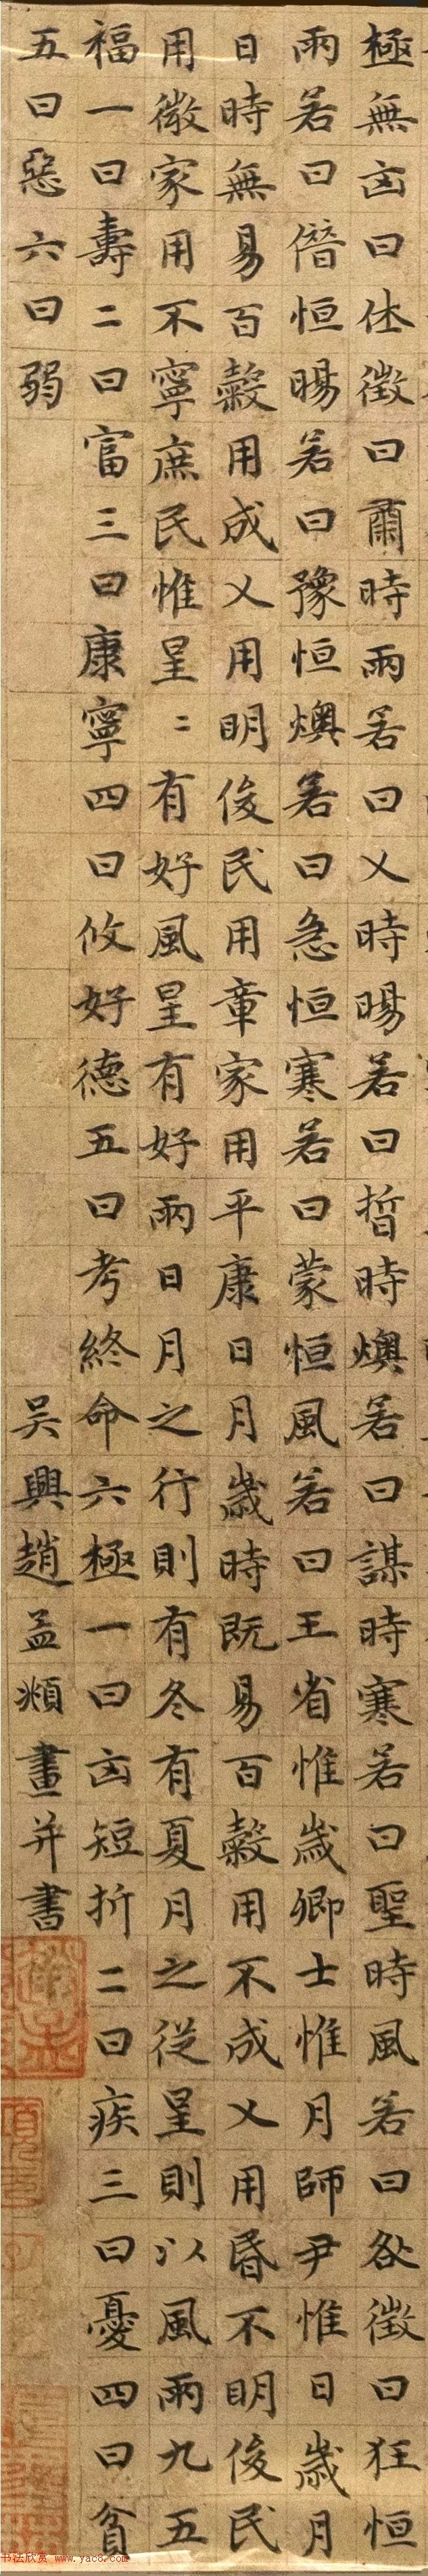 極無凶曰休徵曰肅時雨若曰乂時暘若曰晢時燠若曰謀時寒若曰聖時風若曰咎徵曰狂恒
雨若曰僭恒暘若曰豫恒燠若曰急恒寒若曰蒙恒風若曰王省惟歲卿士惟月師尹惟日歲月
日時無易百穀用成乂用明俊民用章家用平康日月歲時既易百穀用不成乂用昏不明俊民
用微家用不寧庶民惟星〻有好風星有好雨日月之行則有冬有夏月之從星則以風雨九五
福一曰壽二曰富三曰康寧四曰攸好德五曰考終命六極一曰凶短折二曰疾三曰憂四曰貧
五曰惡六曰弱 吳興趙孟頫畫并書
书法欣赏 www.yac8.com